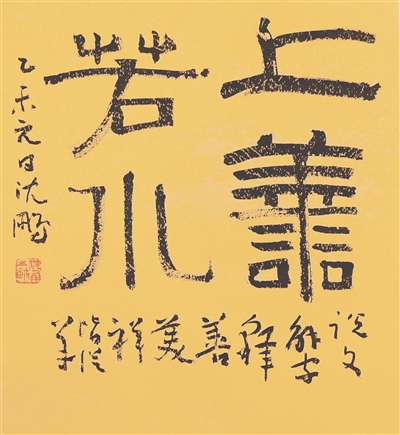 上善
若水
说文
解字
释
善
美
祥
皆从
羊
乙未元日沈鹏